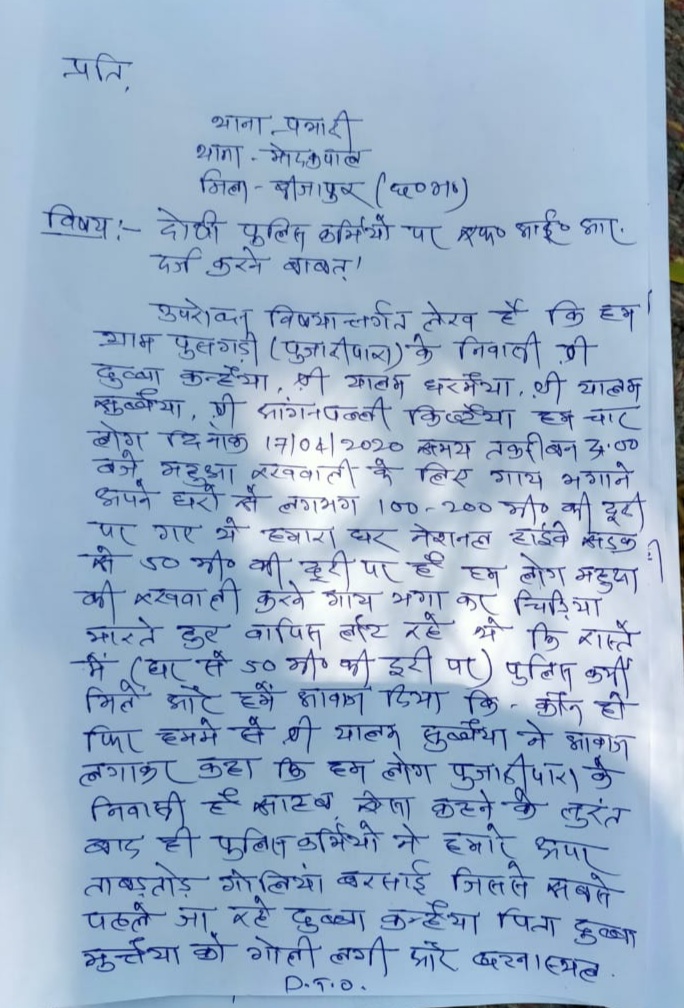 प्रति,
थाना प्रभारी
थाना - मोदकपाल
जिला - बीजापुर (छ०ग०)
विषय:- दोषी पुलिस कर्मियों पर एफ० आई० आर.
दर्ज करने बाबत्!
उपरोक्त विषयान्तर्गत लेख है कि हम
ग्राम पुसगड़ी (पुजारीपारा) के निवासी श्री
दुब्बा कन्हैया, श्री यालम धरमैया, श्री यालम
सुब्बैया, श्री किष्टैया हम चार
लोग दिनांक 17/04/2020 समय तकरीबन 3:00
बजे महुआ रखवाली के लिए गाय भगाने
अपने घरों से लगभग 100-200 मी० की दूरी
पर गए थे हमारा घर नेशनल हाईवे सड़क
से 50 मी० की दूरी पर है हम लोग महुआ
की रखवाली करने गाय भगा कर चिड़िया
मारते हुए वापिस लौट रहे थे कि रास्ते
में (घर से 50 मी० की दूरी पर) पुलिस कर्मी
मिले और हमें आवाज दिया कि - कौन हो
फिर हममे से श्री यालम सुब्बैया ने आवाज
लगाकर कहा कि हम लोग पुजारीपारा के
निवासी हैं साहब, ऐसा कहने के तुरंत
बाद ही पुलिस कर्मियों ने हमारे ऊपर
ताबड़तोड़ गोलियां बरसाई जिससे सबसे
पहले जा रहे दुब्बा कन्हैया पिता दुब्बा
मुत्तैया को गोली लगी और घटनास्थल.
D.T.O.